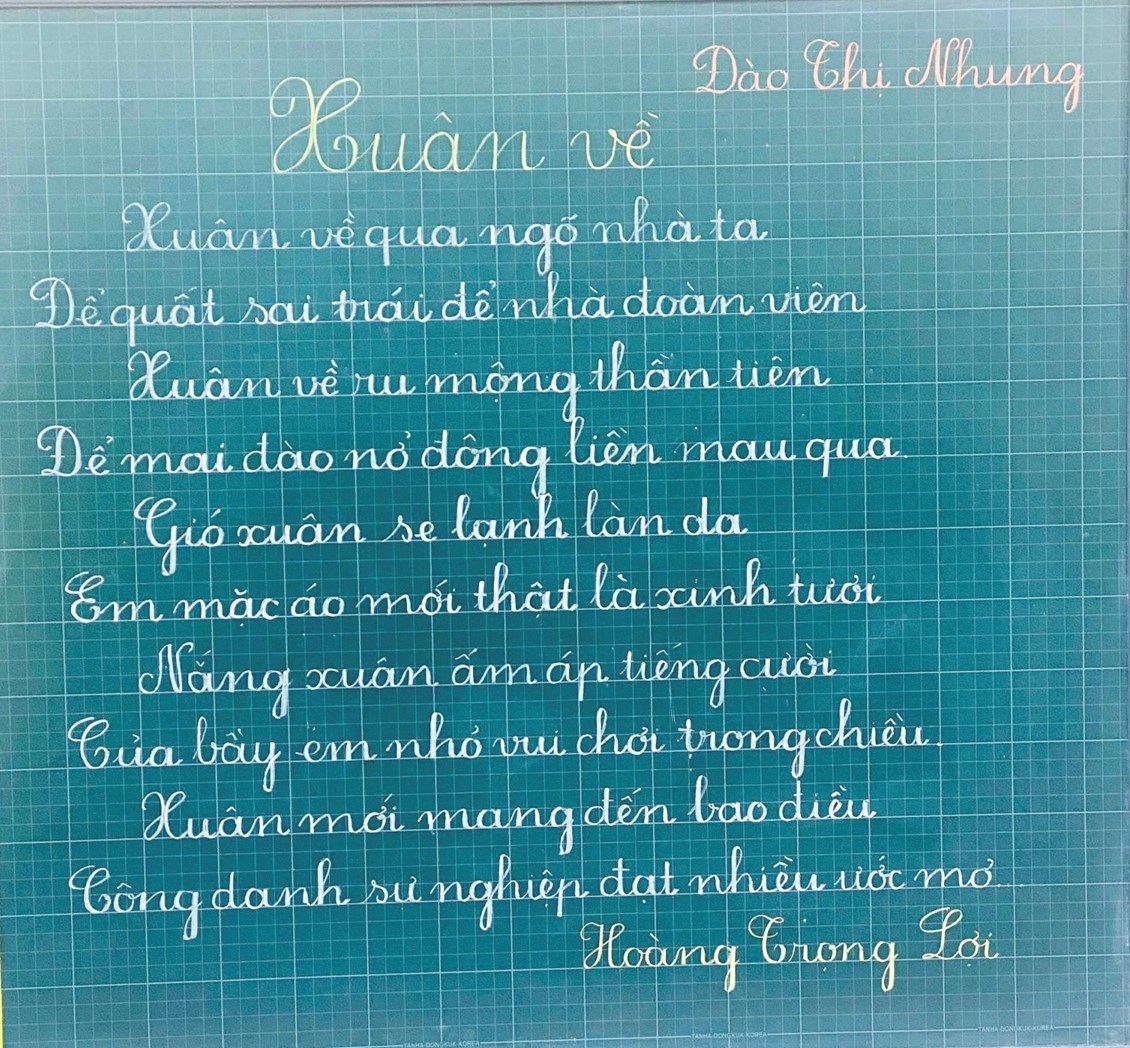 Đào Thị Nhung
Xuân về
Xuân về qua ngõ nhà ta
Để quất sai trái để nhà đoàn viên
Xuân về ru mộng thần tiên
Để mai đào nở đông liền mau qua.
Gió xuân se lạnh làn da
Em mặc áo mới thật là xinh tươi
Nắng xuân ấm áp tiếng cười
Của bầy em nhỏ vui chơi trong chiều.
Xuân mới mang đến bao điều
Công danh sự nghiệp đạt nhiều ước mơ...
Hoàng Trọng Lợi
TANHA-DONGKUK-KOREA
TANHA-DONGKUK-KOREA
TANHA-DONGKUK-KOREA